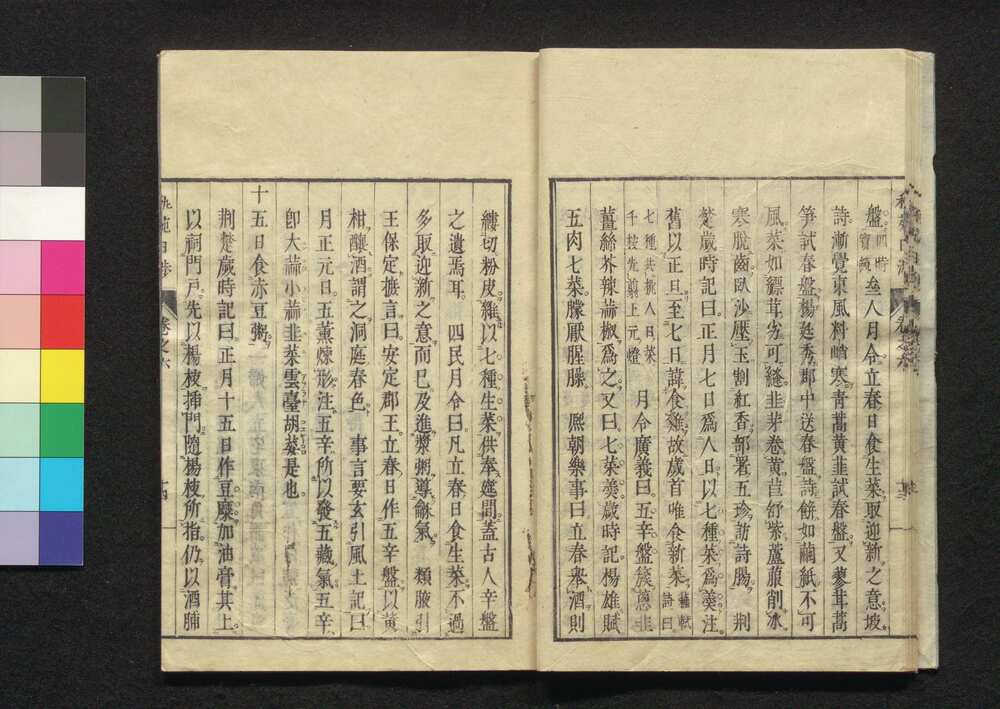 盤四時寶鏡叁人月令立春日食生菜取迎新之意坡
詩漸覺東風料峭寒青蒿黃韭試春盤又蓼茸蒿
笋試春盤楊廷秀郡中送春盤詩餅如繭紙不可
風菜如縹茸劣可縫韭芽卷黃苣舒紫蘆菔削冰
寒脫齒臥沙壓玉割紅香部署五珍訪詩腸 荆
楚歲時記曰正月七日爲人日以七種菜爲羹注
舊以正旦至七日諱食雞故歲首唯食新菜 詩曰
七種共挑人日菜
千枝先剪上元燈 月令廣義曰五辛盤簇蔥韭
薑絲芥辣蒜椒爲之又曰七菜羹歲時記楊雄賦
五肉七菜朦厭腥臊 熈朝樂事曰立春奉酒則
縷切粉皮雜以七種生菜供奉筵間蓋古人辛盤
之遺焉耳 四民月令曰凡立春日食生菜不過
多取迎新之意而已及進漿粥導龢氣 類腋引
王保定摭言曰安定郡王立春日作五辛盤以黃
柑釀酒謂之洞庭春色 事言要玄引風土記曰
月正元日五薰煉形注五辛所以發五藏氣五辛
卽大蒜小蒜韭菜雲臺胡荽是也
十五日食赤豆粥
荆楚歲時記曰正月十五日作豆糜加油膏其上
以祠門戸先以楊枝揷門隨楊枝所指仍以酒脯
卷之六